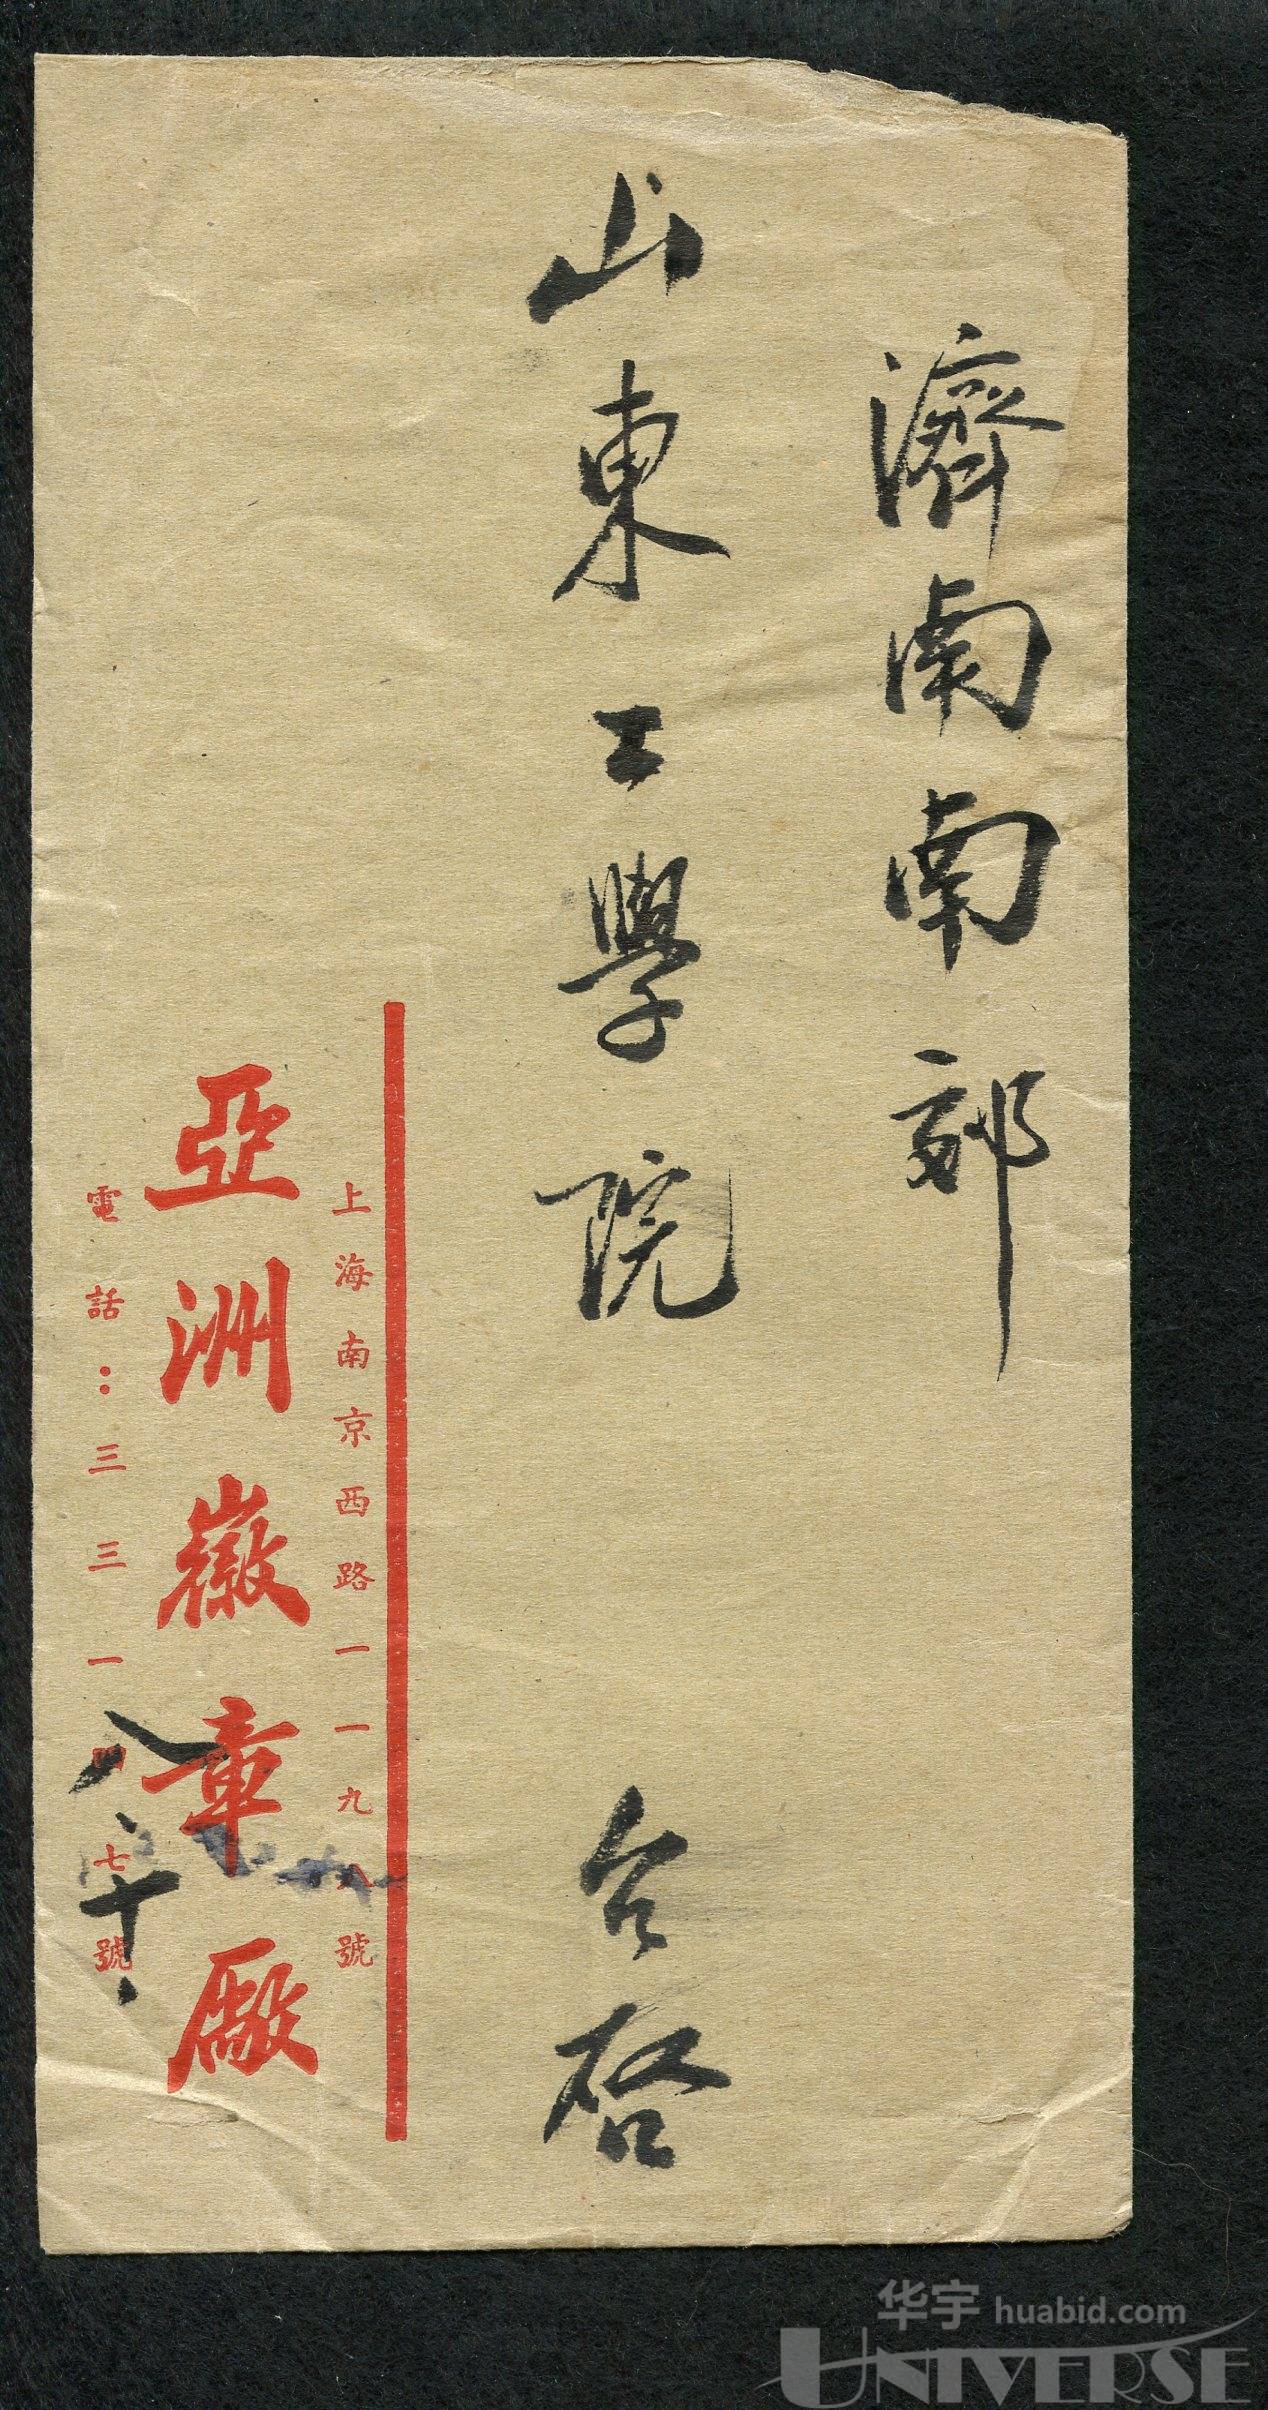 濟南南郊
山東工學院 台啓
上海南京西路一一九八號
亞洲徽章廠
電話：三三一四七號
八、十、
华宇 huabid.com
UNIVERSE